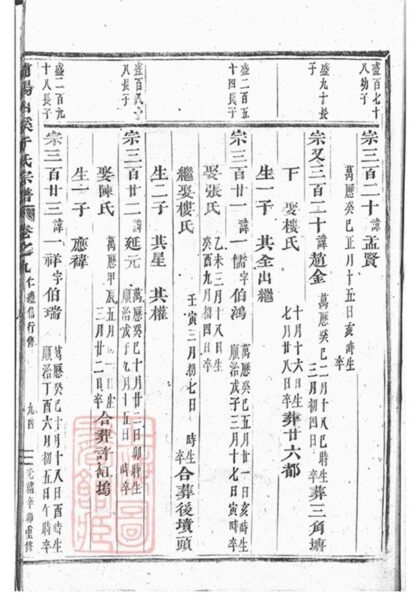 盛百七十
八幼子
宗三百二十諱孟賢
萬曆癸巳正月十五日亥時生
卒
盛九十長
子
宗又三百二十諱趙金
萬曆癸巳二月十八巳時生
三月初四日 卒
葬三角塘
下 娶樓氏
十月十六日生
七月廿八日卒
葬廿六都
生一子 其全出繼
盛二百五
十四長子
宗三百廿一諱一儒字伯鴻
萬曆癸巳三月廿一日亥時生
順治戊子三月十七日寅時卒
娶張氏
乙未三月十八日生
癸酉九月初四日卒
繼娶樓氏
壬寅三月初七日 時生
卒
合葬後墳頭
生二子 其星 其權
八長子
宗三百廿二諱延元
萬曆癸巳十月廿三日卯時生
順治戊子九月十五日 時卒
娶陳氏
萬曆甲五月 日 時生
三月廿二日卒
合葬許缸塢
生一子 應褘
盛二百九
十八長子
宗三百廿三諱一祥字伯瑞
萬曆癸巳十月十八日 時生
順治丁酉六月初五日 時卒
陽 溪于氏宗譜 卷之九 仁禮信行傳 九四 光緒辛卯重修
圖
館